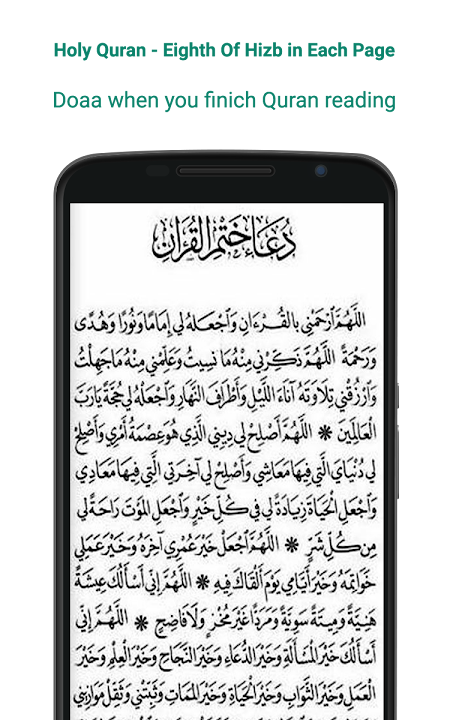 Holy Quran - Eighth Of Hizb in Each Page
Doaa when you finich Quran reading
دُعَاءُ خَتْمِ القُرْآنِ
اللَّهُمَّ ٱرْحَمْنِي بِالقُرْءَانِ وَٱجْعَلهُ لِي إِمَامًا وَنُورًا وَهُدًى
وَرَحْمَةً اللَّهُمَّ ذَكِّرْنِي مِنْهُ مَا نَسِيتُ وَعَلِّمْنِي مِنْهُ مَا جَهِلْتُ
وَٱرْزُقْنِي تِلَاوَتَهُ آنَاءَ اللَّيْلِ وَأَطْرَافَ النَّهَارِ وَٱجْعَلْهُ لِي حُجَّةً يَارَبَّ
الْعَالَمِينَ ❋ اللَّهُمَّ أَصْلِحْ لِي دِينِي الَّذِي هُوَ عِصْمَةُ أَمْرِي وَأَصْلِحْ
لِي دُنْيَايَ الَّتِي فِيهَا مَعَاشِي وَأَصْلِحْ لِي آخِرَتِي الَّتِي فِيهَا مَعَادِي
وَٱجْعَلِ الْحَيَاةَ زِيَادَةً لِي فِي كُلِّ خَيْرٍ وَٱجْعَلِ الْمَوْتَ رَاحَةً لِي
مِن كُلِّ شَرٍّ ❋ اللَّهُمَّ ٱجْعَلْ خَيْرَ عُمْرِي آخِرَهُ وَخَيْرَ عَمَلِي
خَوَاتِمَهُ وَخَيْرَ أَيَّامِي يَوْمَ أَلْقَاكَ فِيهِ ❋ اللَّهُمَّ إِنِّي أَسْأَلُكَ عِيشَةً
هَنِيَّةً وَمِيتَةً سَوِيَّةً وَمَرَدًّا غَيْرَ مُخْزٍ وَلَا فَاضِحٍ ❋ اللَّهُمَّ إِنِّي
أَسْأَلُكَ خَيْرَ الْمَسْأَلَةِ وَخَيْرَ الدُّعَاءِ وَخَيْرَ النَّجَاحِ وَخَيْرَ الْعِلْمِ وَخَيْرَ
الْعَمَلِ وَخَيْرَ الثَّوَابِ وَخَيْرَ الْحَيَاةِ وَخَيْرَ الْمَمَاتِ وَثَبِّتْنِي وَثَقِّلْ مَوَازِينِي